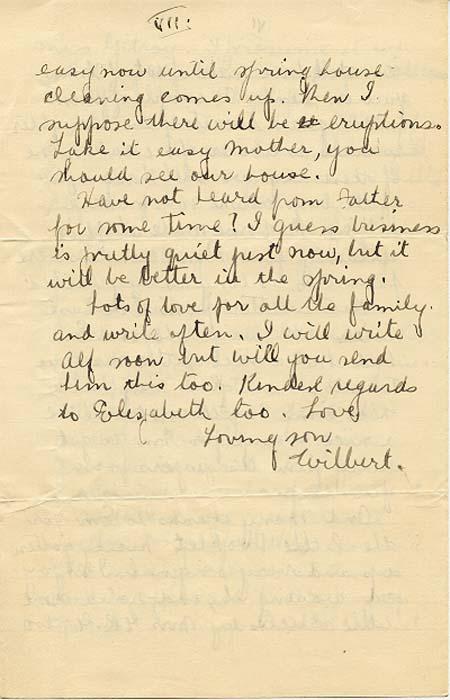 VII.
easy now until spring house
cleaning comes up. Then I
suppose there will be eruptions.
Take it easy Mother, you
should see our house.
Have not heard from Father
for some time? I guess business
is pretty quiet just now, but it
will be better in the spring.
Lots of love for all the family.
and write often. I will write
Alf soon but will you send
him this too. Kindest regards
to too. Love,
Loving son
Wilbert.